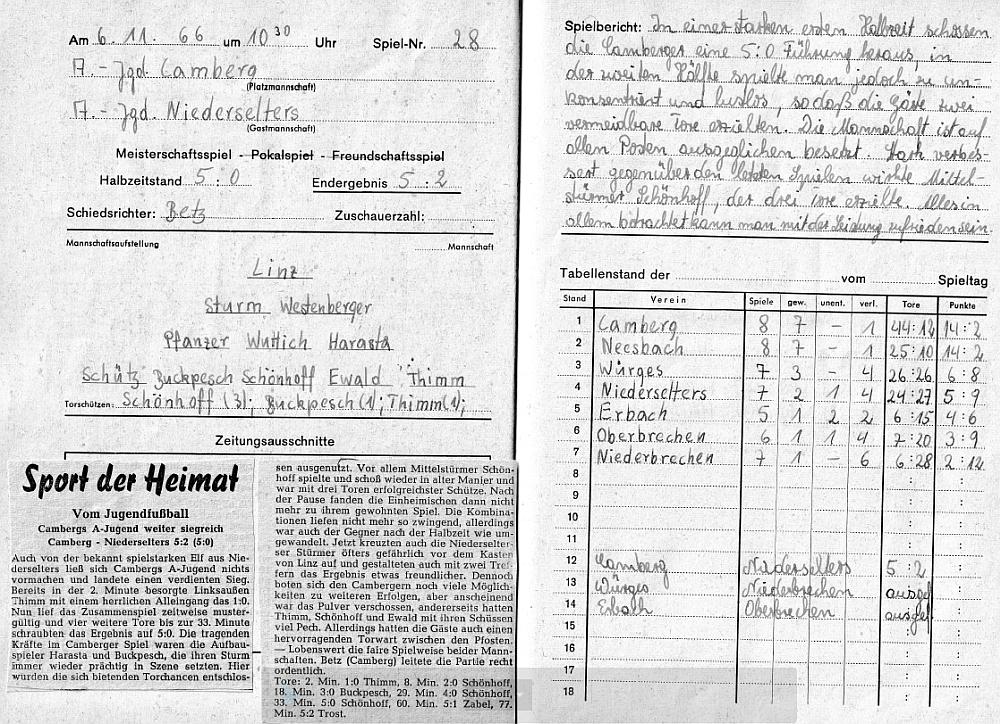 Am 6. 11. 66 um 10 30 Uhr Spiel-Nr. 28
A.-Jgd. Camberg
(Platzmannschaft)
A.-Jgd. Niederselters
(Gastmannschaft)
Meisterschaftsspiel - Pokalspiel - Freundschaftsspiel
Halbzeitstand 5:0 Endergebnis 5:2
Schiedsrichter: Betz Zuschauerzahl:
Mannschaftsaufstellung Mannschaft
Linz
Sturm Westenberger
Pfanzer Wuttich Harasta
Schütz Buckpesch Schönhoff Ewald Thimm
Torschützen: Schönhoff (3); Buckpesch (1); Thimm (1);
Zeitungsausschnitte
Sport der Heimat
Vom Jugendfußball
Cambergs A-Jugend weiter siegreich
Camberg - Niederselters 5:2 (5:0)
Auch von der bekannt spielstarken Elf aus Nie-
derselters ließ sich Cambergs A-Jugend nichts
vormachen und landete einen verdienten Sieg.
Bereits in der 2. Minute besorgte Linksaußen
Thimm mit einem herrlichen Alleingang das 1:0.
Nun lief das Zusammenspiel zeitweise muster-
gültig und vier weitere Tore bis zur 33. Minute
schraubten das Ergebnis auf 5:0. Die tragenden
Kräfte im Camberger Spiel waren die Aufbau-
spieler Harasta und Buckpesch, die ihren Sturm
immer wieder prächtig in Szene setzten. Hier
wurden die sich bietenden Torchancen entschlos-
sen ausgenutzt. Vor allem Mittelstürmer Schön-
hoff spielte und schoß wieder in alter Manier und
war mit drei Toren erfolgreichster Schütze. Nach
der Pause fanden die Einheimischen dann nicht
mehr zu ihrem gewohnten Spiel. Die Kombina-
tionen liefen nicht mehr so zwingend, allerdings
war auch der Gegner nach der Halbzeit wie um-
gewandelt. Jetzt kreuzten auch die Niederselter-
ser Stürmer öfters gefährlich vor dem Kasten
von Linz auf und gestalteten auch mit zwei Tref-
fern das Ergebnis etwas freundlicher. Dennoch
boten sich den Cambergern noch viele Möglich-
keiten zu weiteren Erfolgen, aber anscheinend
war das Pulver verschossen, andererseits hatten
Thimm, Schönhoff und Ewald mit ihren Schüssen
viel Pech. Allerdings hatten die Gäste auch einen
hervorragenden Torwart zwischen den Pfosten.
— Lobenswert die faire Spielweise beider Mann-
schaften. Betz (Camberg) leitete die Partie recht
ordentlich.
Tore: 2. Min. 1:0 Thimm, 8. Min. 2:0 Schönhoff,
18. Min. 3:0 Buckpesch, 29. Min. 4:0 Schönhoff,
33. Min. 5:0 Schönhoff, 60. Min. 5:1 Zabel, 77.
Min. 5:2 Trost.
Spielbericht: In einer starken ersten Halbzeit schossen
die Camberger eine 5:0 Führung heraus, in
der zweiten Hälfte spielte man jedoch zu un-
konzentriert und lustlos, so daß die Gäste zwei
vermeidbare Tore erzielten. Die Mannschaft ist auf
allen Posten ausgeglichen besetzt. Stark verbes-
sert gegenüber den letzten Spielen wirkte Mittel-
stürmer Schönhoff, der drei Tore erzielte. Alles in
allem betrachtet kann man mit der Leistung zufrieden sein.
Tabellenstand der vom Spieltag
Stand Verein Spiele gew. unent. verl. Tore Punkte
1 Camberg 8 7 - 1 44:12 14:2
2 Neesbach 8 7 - 1 25:10 14:2
3 Würges 7 3 - 4 26:26 6:8
4 Niederselters 7 2 1 4 24:27 5:9
5 Erbach 5 1 2 2 6:15 4:6
6 Oberbrechen 6 1 1 4 7:20 3:9
7 Niederbrechen 7 1 - 6 6:28 2:12
8 : :
9 : :
10 : :
11 : :
12 Camberg Niederselters 5:2 :
13 Würges Niederbrechen ausgef :
14 Erbach Oberbrechen ausgef :
15 : :
16 : :
17 : :
18 : :